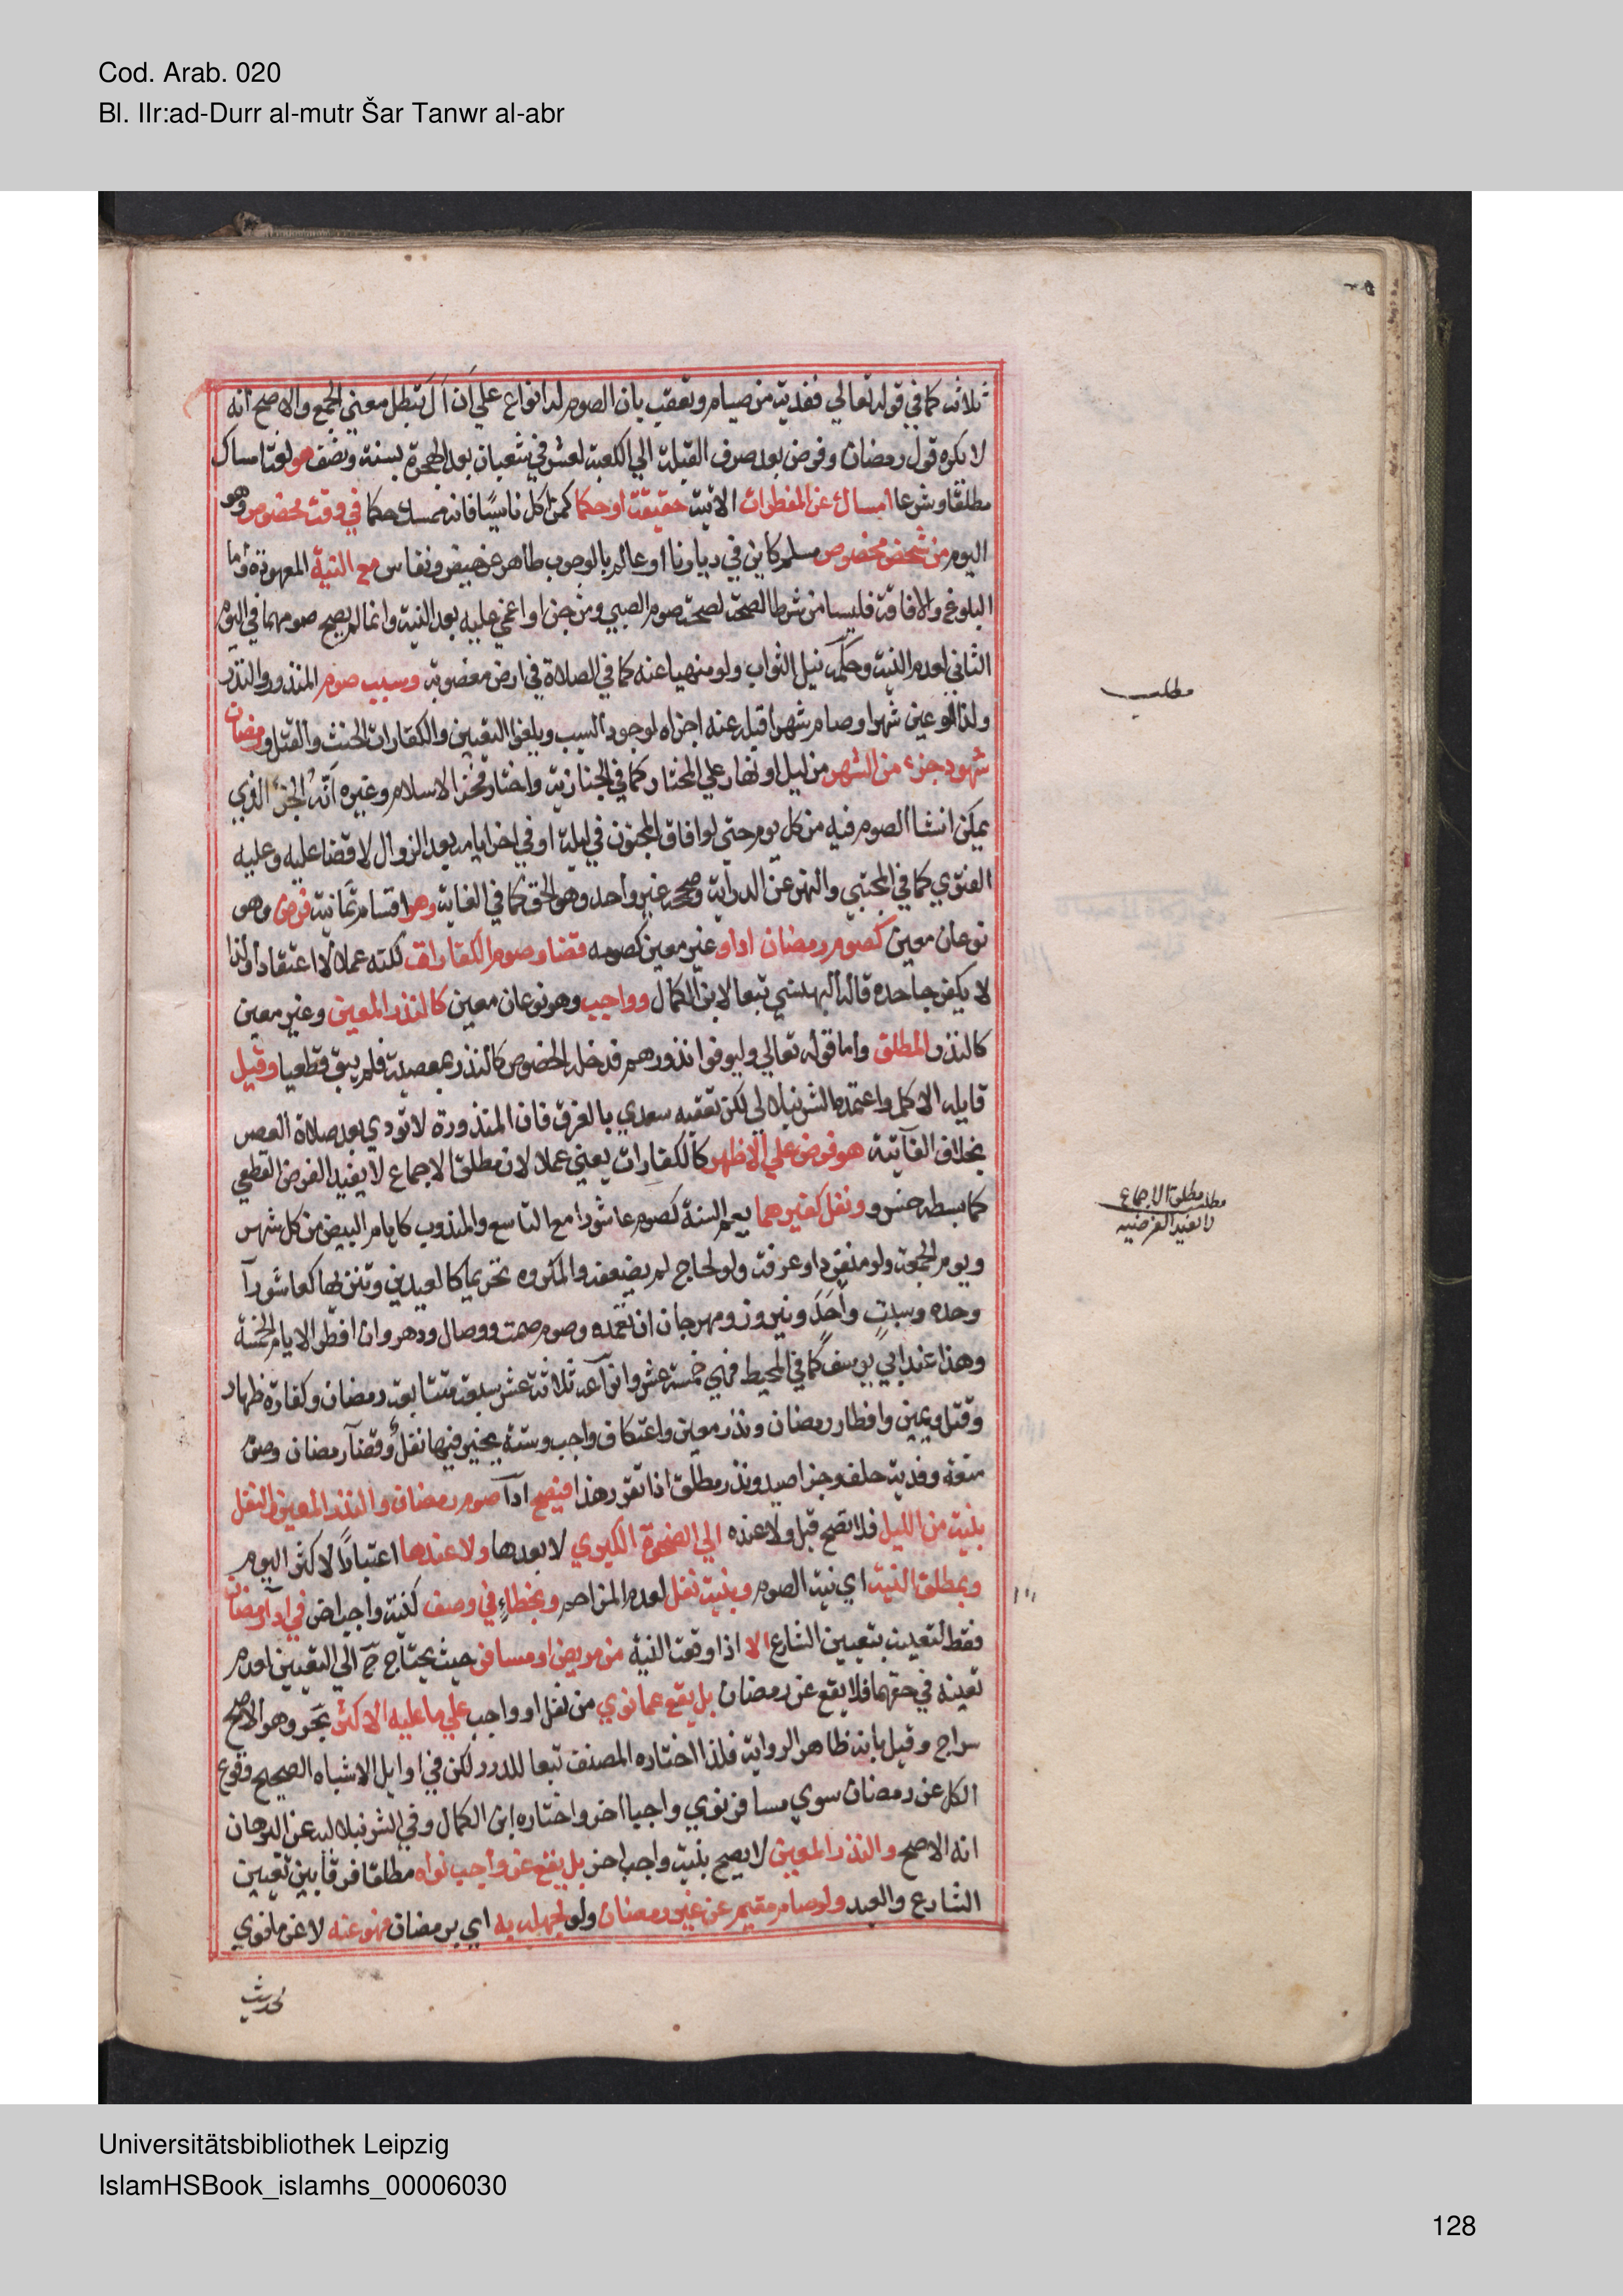 Cod. Arab. 020
Bl. IIr:ad-Durr al-mutr Šar Tanwr al-abr
ثلاثه كما في قوله تعالي ففدية من صيام وتعقب بان الصوم له انواع علي ان ال تبطل معني الجمع والاصح انه
لا يكره قول رمضان وفرض بعد صرف القبلة الي الكعبة لعشر في شعبان بعد الهجرة بسنة ونصف هو لغة امساك
مطلقا وشرعا امساك عن المفطرات الاتية حقيقة او حكما كمن اكل ناسيا فانه ممسك حكما في وقت مخصوص وهو
اليوم من شخص مخصوص مسلم كاين في ديارنا او عالم بالوجوب طاهر عن حيض ونفاس مع النية المعهودة واما
البلوغ والافاقة فليسا من شرط الصحة لصحة صوم الصبي ومن جن او اغمي عليه بعد النية وانما لم يصح صومهما في اليوم
الثاني لعدم النية وحكمه نيل الثواب ولو منهيا عنه كما في الصلاة في ارض مغصوبة وسبب صوم المنذور والنذر
ولذا لو عين شهرا وصام شهرا قبله عنه اجزاه لوجود السبب ويلغوا التعيين والكفارات الحنث والقتل ورمضان
شهود جزء من الشهر من ليل او نهار علي المختار كما في الجنازية واختار فخر الاسلام وغيره انه الجزء الذي
يمكن انشا الصوم فيه من كل يوم حتي لو افاق المجنون في ليلة او في اخر ايامه بعد الزوال لا قضا عليه وعليه
الفتوي كما في المجتبي والنهر عن الدراية وصححه غير واحد وهو الحق كما في الغاية وهو اقسام ثمانية فرض وهو
نوعان معين كصوم رمضان ادا وغير معين كصومه قضا وصوم الكفارات لكنه عملا لا اعتقادا ولذا
لا يكفر جاحده قاله البهنسي تبعا لابن الكمال وواجب وهو نوعان معين كالنذر المعين وغير معين
كالنذر المطلق واما قوله تعالي وليوفوا نذورهم فدخله الخصوص كالنذر بمعصية فلم يبق قطعيا وقيل
قايله الاكمل واعتمده الشرنبلالي لكن تعقبه سعدي بالفرق فان المنذورة لا تودي بعد صلاة العصر
بخلاف الفآئتة هو فرض علي الاظهر كالكفارات يعني عملا لان مطلق الاجماع لا يفيد الفرض القطعي
كما بسطه خسرو ونفل كغيرهما يعم السنة كصوم عاشورا مع التاسع والمندوب كايام البيض من كل شهر
ويوم الجمعة ولو منفردا وعرفة ولو لحاج لم يضعفه والمكروه تحريما كالعيدين وتنزيها كعاشورآ
وحده وسبت واحد ونيروز ومهرجان ان تعمده وصوم صمت ووصال ودهر وان افطر الايام الخمسة
وهذا عند ابي يوسف كما في المحيط فهي خمسة عشر وانواعه ثلاثة عشر سبعة متتابعة رمضان وكفارة ظهار
وقتل ويمين وافطار رمضان ونذر معين واعتكاف واجب وستة يخير فيها نفل وقضآ رمضان وصوم
متعة وفدية حلف وجزا صيد ونذر مطلق اذا تقرر هذا فيصح ادآ صوم رمضان والنذر المعين والنفل
بنية من الليل فلا تصح قبل ولا عنده الي الضحوة الكبري لا بعدها ولا عندها اعتبارا لاكثر اليوم
وبمطلق النية اي نية الصوم وبنية نفل لعدم المزاحم وبخطاء في وصف كنية واجب اخر في ادآ رمضان
فقط لتعينه بتعيين الشارع الا اذا وقعت النية من مريض او مسافر حيث يحتاج ح الي التعيين لعدم
تعينه في حقهما فلا يقع عن رمضان بل يقع عما نوي من نفل او واجب علي ما عليه الاكثر بحر وهو الاصح
سراج وقيل بانه ظاهر الرواية فلذا اختاره المصنف تبعا للدرر لكن في اوايل الاشباه الصحيح وقوع
الكل عن رمضان سوي مسافر نوي واجبا اخر واختاره ابن الكمال وفي الشرنبلالية عن البرهان
انه الاصح والنذر المعين لا يصح بنية واجب اخر بل يقع عن واجب نواه مطلقا فرقا بين تعيين
الشارع والعبد ولو صام مقيم عن غير رمضان ولو لجهله به اي برمضان فهو عنه لا عن ما نوي
لحديث
مطلب
مطلب مطلق الاجماع
لا يفيد الفرضيه
Universitätsbibliothek Leipzig
IslamHSBook_islamhs_00006030
128